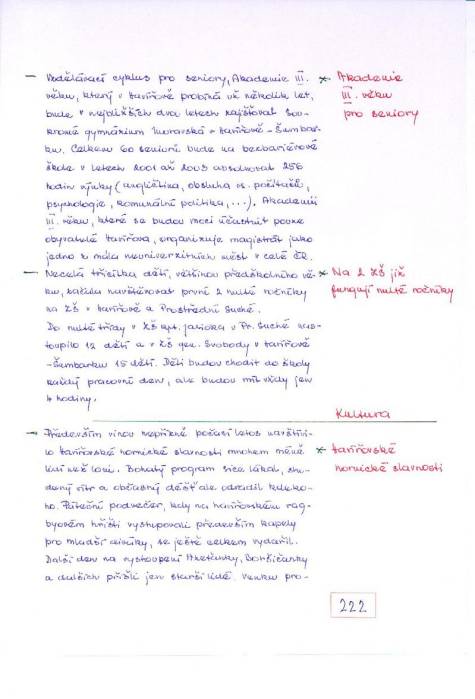 – Vzdělávací cyklus pro seniory, Akademie III.
věku, který v Havířově probíhá už několik let,
bude v nejbližších dvou letech zajišťovat Sou-
kromé gymnázium Moravská v Havířově – Šumbar-
ku. Celkem 60 seniorů bude na bezbariérové
škole v letech 2001 až 2003 absolvovat 256
hodin výuky (angličtina, obsluha os. počítačů,
psychologie, komunální politika, ...). Akademii
III. věku, které se budou moci účastnit pouze
obyvatelé Havířova, organizuje magistrát jako
jedno z mála neuniverzitních měst v celé ČR.
– Necelá třicítka dětí, většinou předškolního vě-
ku, začala navštěvovat první 2 nulté ročníky
na ZŠ v Havířově a Prostřední Suché.
Do nulté třídy v ZŠ kpt. Jasioka v Pr. Suché nas-
toupilo 12 dětí a v ZŠ gen. Svobody v Havířově
– Šumbarku 15 dětí. Děti budou chodit do školy
každý pracovní den, ale budou mít vždy jen
4 hodiny.
– Především vinou nepřízně počasí letos navštívi-
lo havířovské hornické slavnosti mnohem méně
lidí než loni. Bohatý program sice lákal, stu-
dený vítr a občasný déšť ale odradil kdeko-
ho. Páteční podvečer, kdy na havířovském rag-
byovém hřišti vystupovali především kapely
pro mladší ročníky, se ještě celkem vydařil.
Další den na vystoupení Anežanky, Boršičanky
a dalších přišli jen starší lidé. Venku pro-
* Akademie
III. věku
pro seniory
* Na 2 ZŠ již
fungují nulté ročníky
Kultura
* Havířovské
hornické slavnosti
222